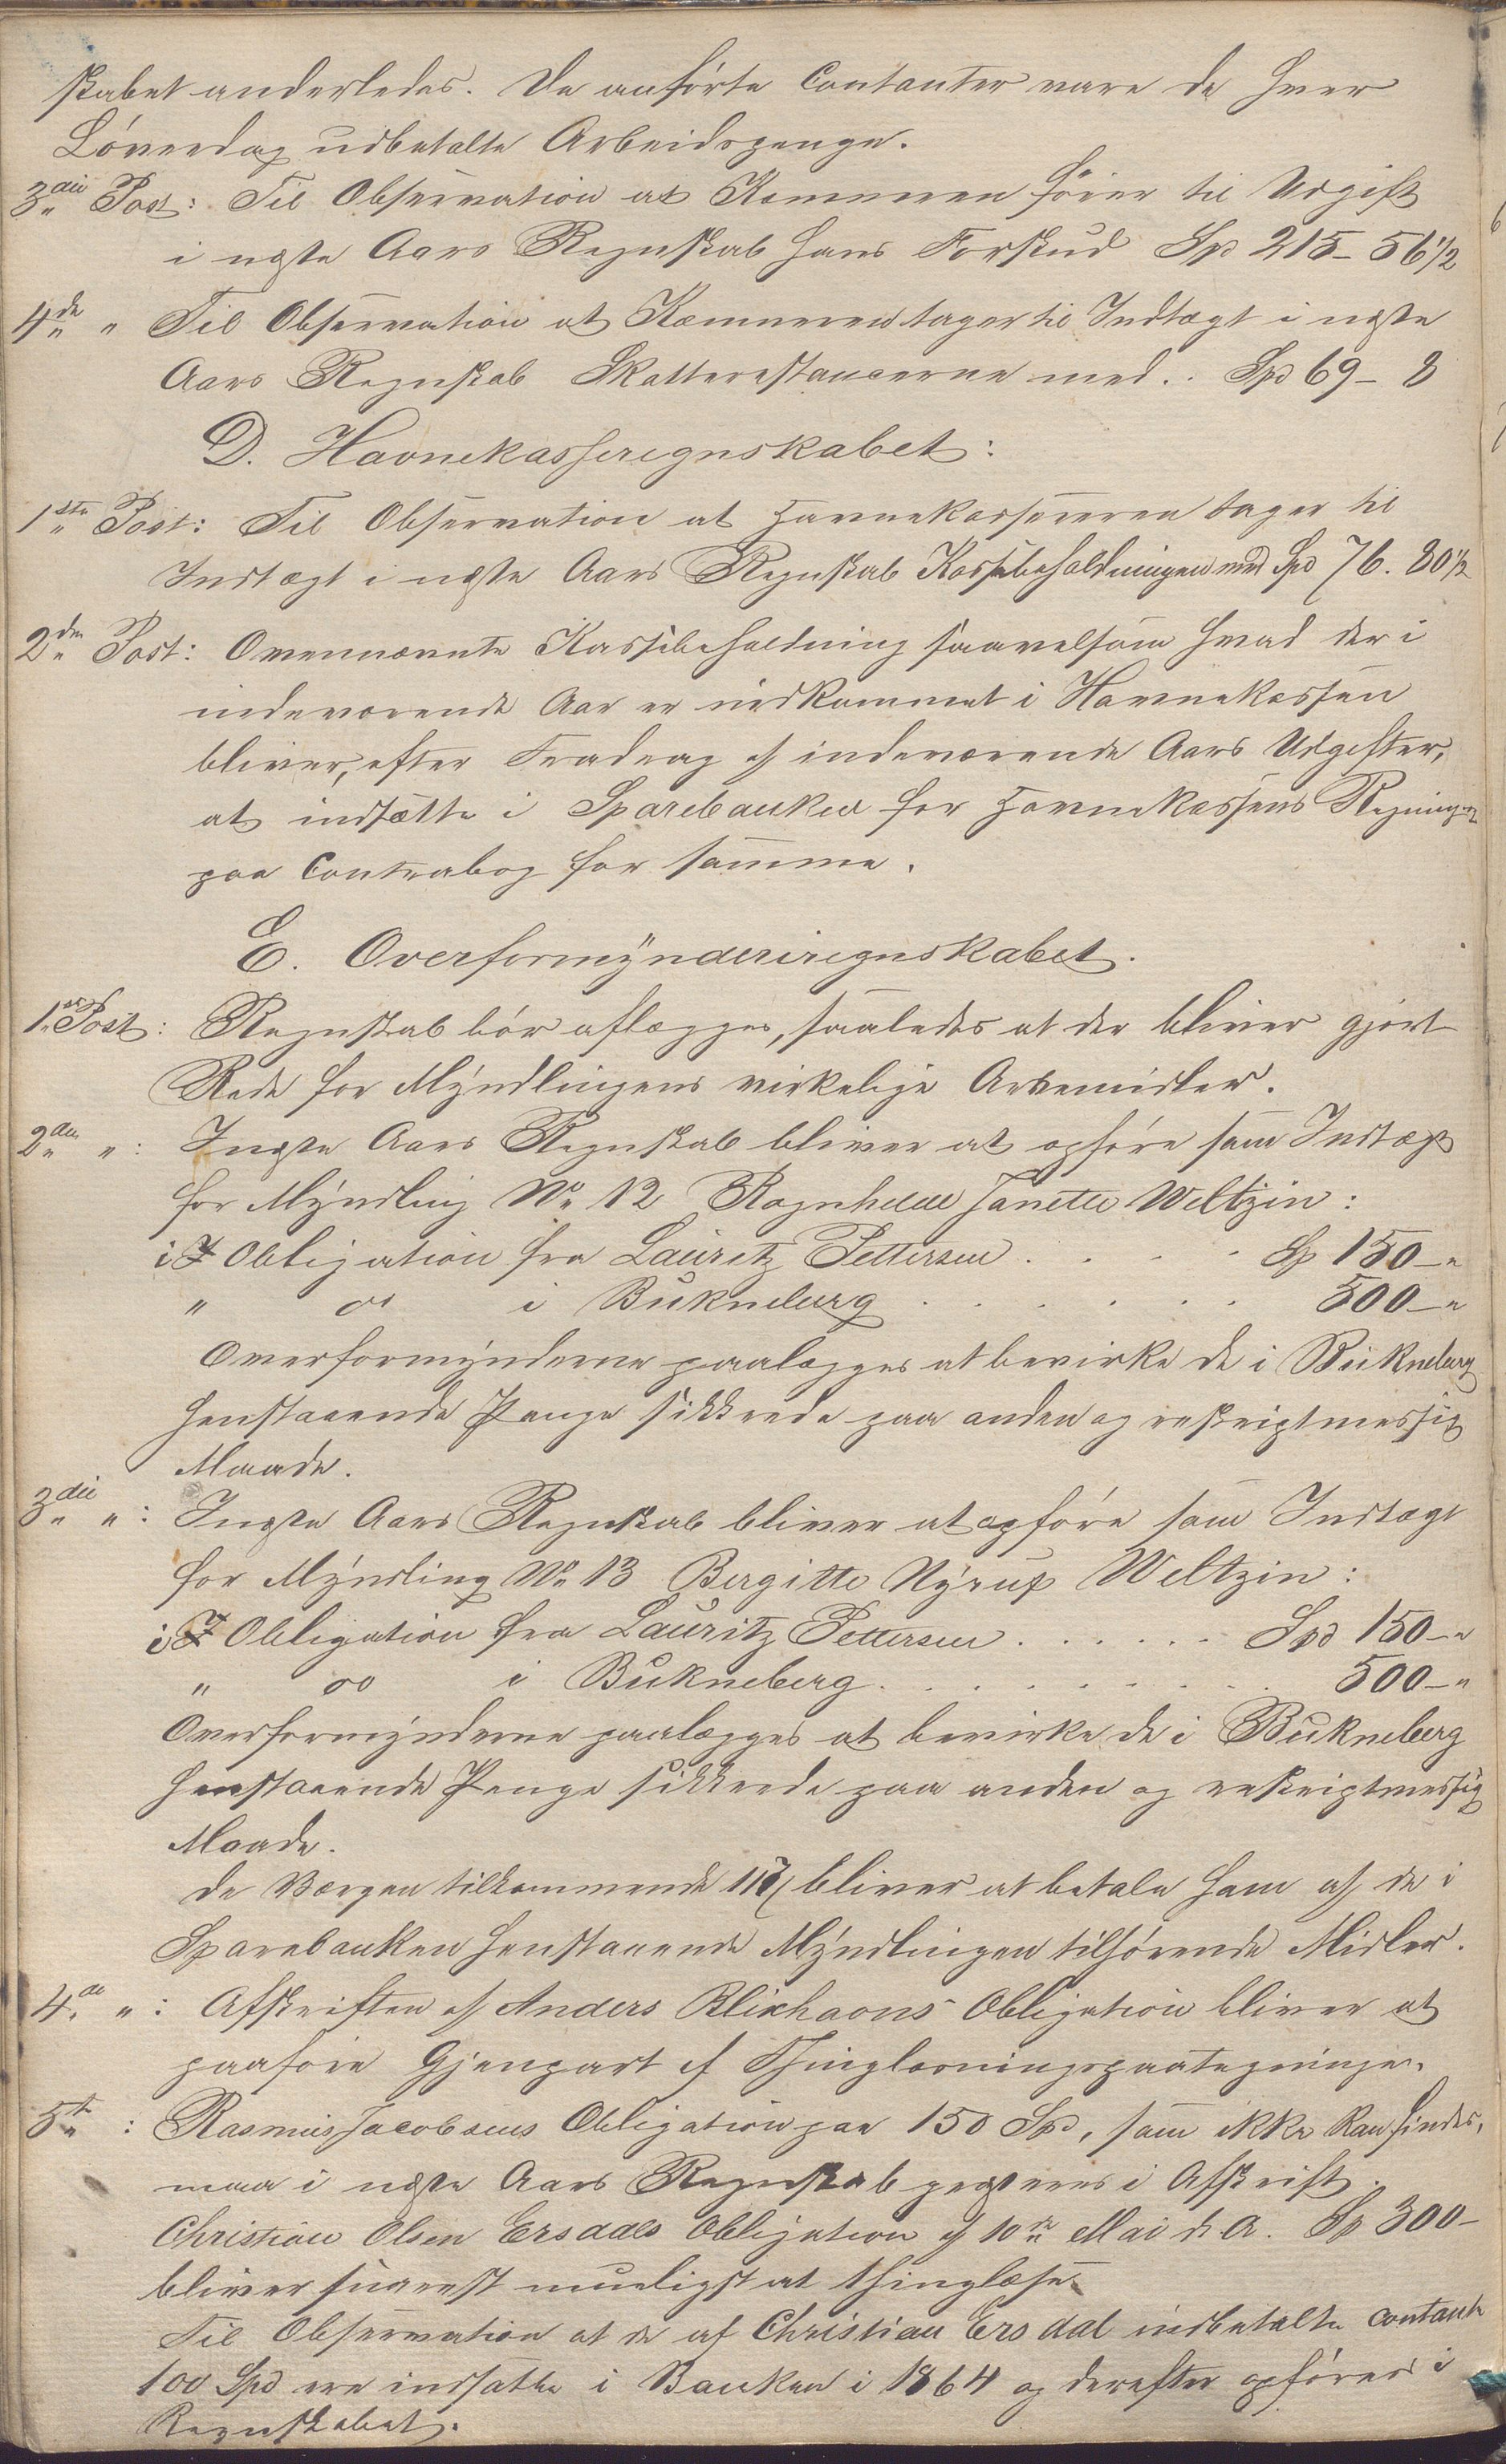 skabet anderledes. De anførte Contanter vare de hver
Løverdag udbetalte Arbeidspenge.
3die Post: Til Observation at Kæmneren fører til Udgift
i næste Aars Regnskab hans Forskud Spd 215 - 56 1/2
4de " Til Observation at Kæmneren tager til Indtægt i næste
Aars Regnskab Skatterestancerne med .. Spd 69 - 8
D. Havnekasseregnskabet:
1ste Post: Til Observation at Havnekassereren tager til
Indtægt i næste Aars Regnskab Kassebeholdningen med Spd 76. 80 1/2
2den Post: Ovennævnte Kassebeholdning saavelsom hvad der i
indeværende Aar er indkommet i Havnekassen
bliver, efter Fradrag af indeværende Aars Udgifter,
at indsætte i Sparebanken for Havnekassens Regning
paa Contrabog for samme.
E. Overformynderiregnskabet.
1ste Post: Regnskab bør aflægges, saaledes at der bliver gjort
Rede for Myndlingens virkelige Arvemidler.
2den " : I næste Aars Regnskab bliver at opføre som Indtægt
for Myndling No 12 Ragnhilde Janette Weltzin:
i Obligation fra Lauritz Pettersen . . . . Sp 150 - "
" do i Bukneberg . . . . . . 500 - "
Overformynderne paalægges at bevirke de i Bukneberg
henstaaende Penge sikkrede paa anden og reskriptmessig
Maade.
3die " : I næste Aars Regnskab bliver at opføre som Indtægt
for Myndling No 13 Bergitte Nyrup Weltzin:
i Obligation fra Lauritz Pettersen . . . . . . Spd 150 - "
" do i Bukneberg . . . . . . . . . 500 - "
Overformynderne paalægges at bevirke de i Bukneberg
henstaaende Penge sikkrede paa anden og reskriptmessig
Maade.
De Værgen tilkommende bliver at betale ham af de i
Sparebanken henstaaende Myndlingen tilhørende Midler.
4de " : Afskriften af Anders Blixhaons Obligation bliver at
paaføre Gjenpart af Thinglæsningspaategningen.
5te : Rasmus Jacobsens Obligation paa 150 Spd, som ikke kan findes,
maa i næste Aars Regnskab præsteres i Afskrift.
Christian Olsen Ersdals Obligation af 10de Mai d. A. Sp 300 -
bliver snarest mueligst at thinglæse.
Til Observation at de af Christian Ersdal indbetalte contante
100 Spd ere indsatte i Banken i 1864 og derefter opføres i
Regnskabet.